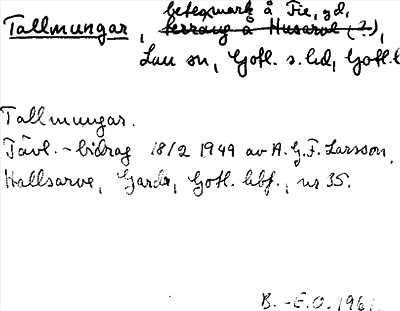 betesmark å Fie, gd,
Tallmungar, terräng å Husarve (?),
Lau sn, Gotl. s. hd, Gotl. l
Tallmungar.
Tävl.-bidrag 18/2 1949 av A. G. F. Larsson,
Hallsarve, Garda, Gotl. hbf., nr 35.
B.-E.O. 1961.